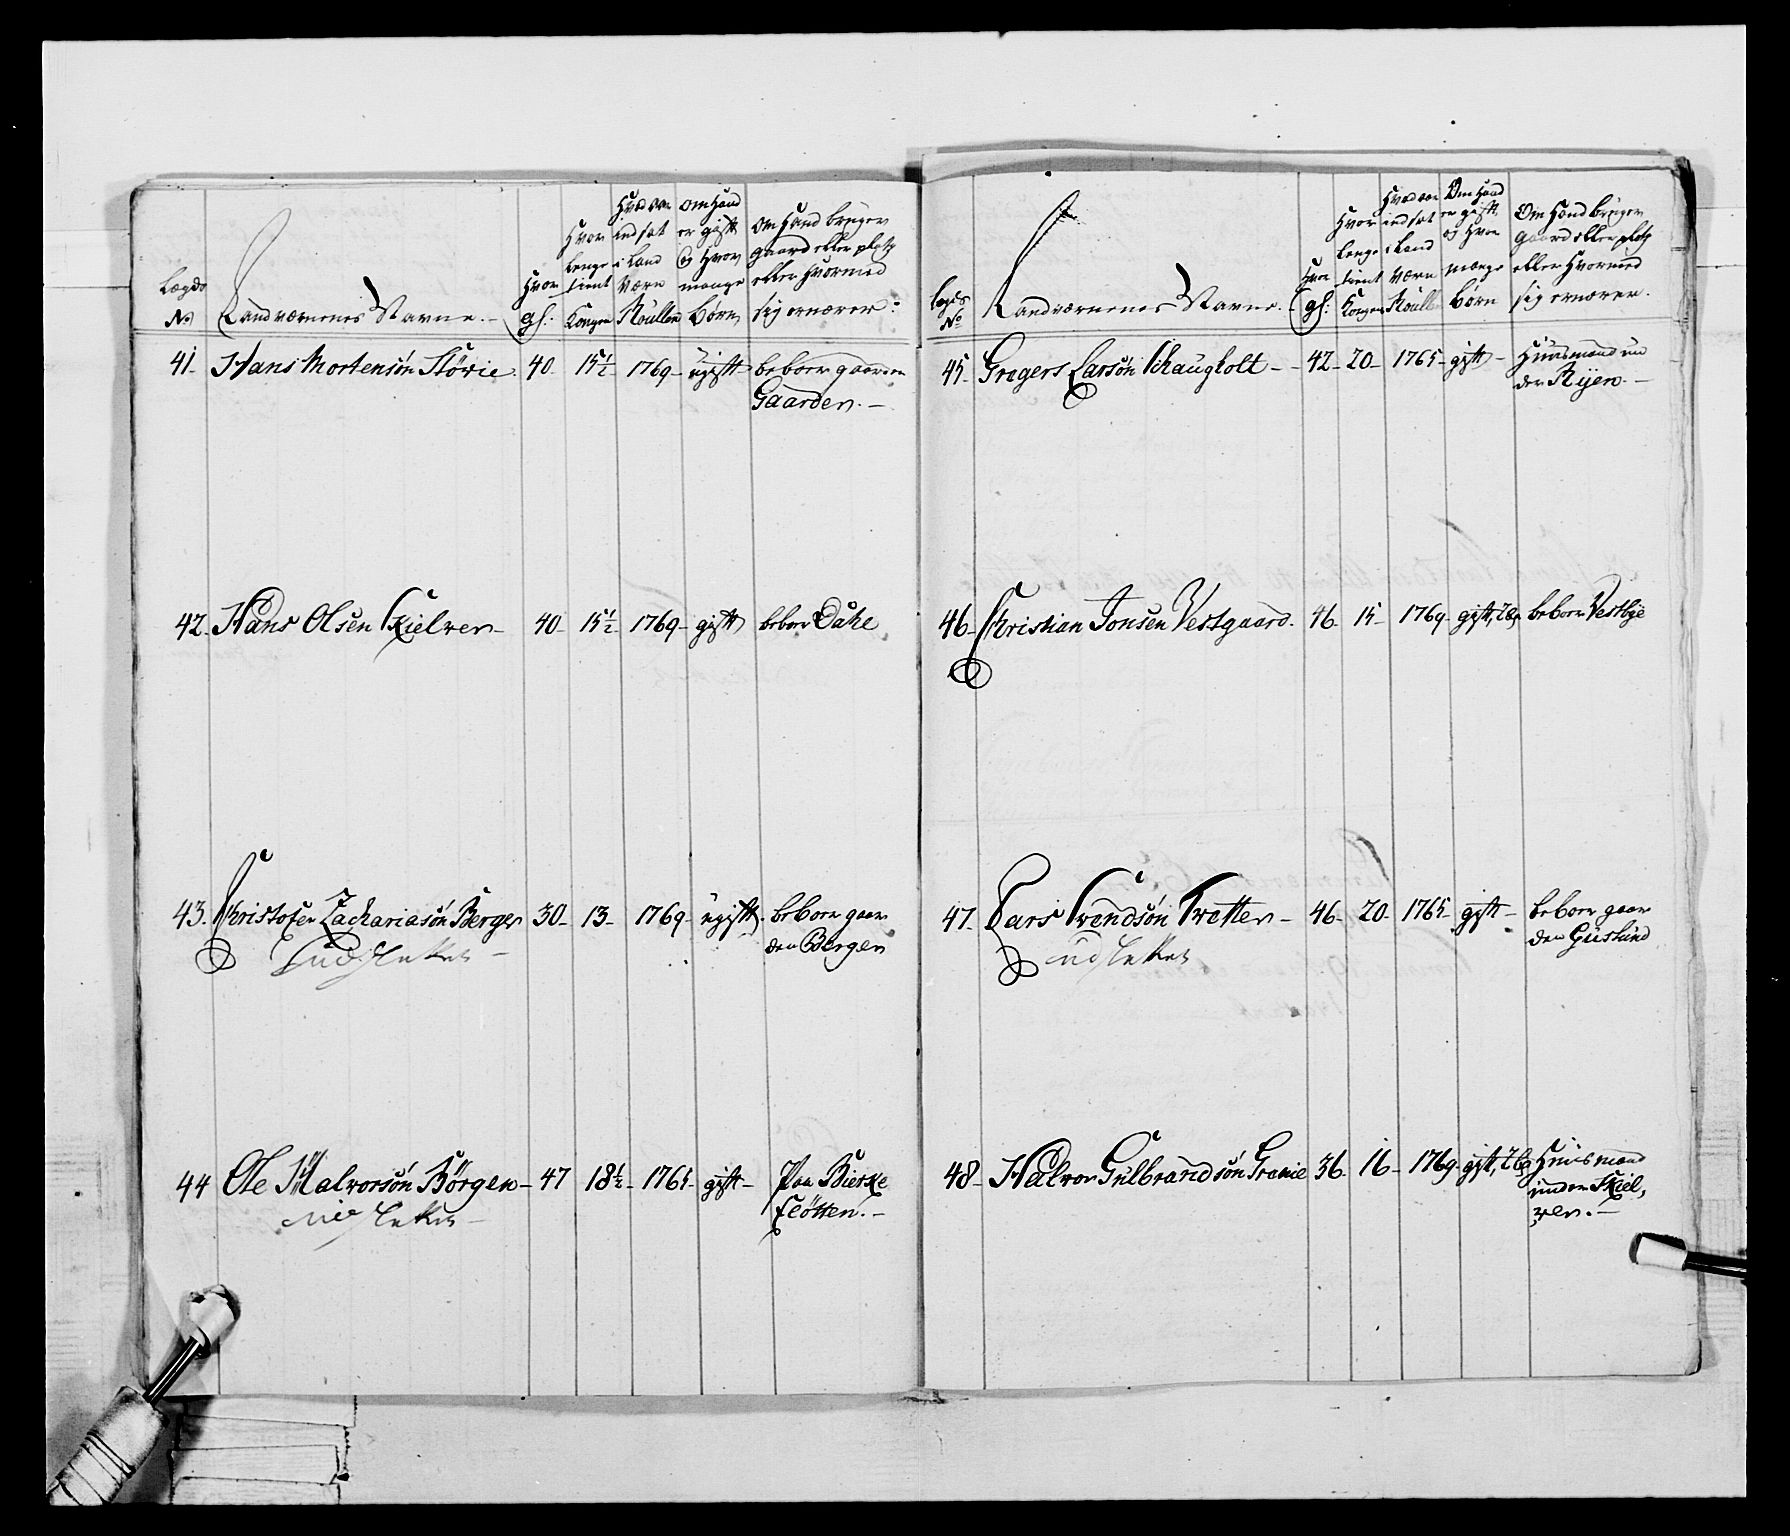 Lægds
No
Landværnenes Navne.
Hvor
gl:
Hvor
lenge
tient
Kongen
Hvad aar
indsat
i Land
Værn
Roullen
Om Hand
er gift
og Hvor
mange
børn
Om Hand bruger
gaard eller platz
eller Hvormed
sig ernærer:
41. Hans Mortensøn Störie. 40. 15½ 1769. ugift beboer gaarden
Gaarden.
42. Hans Olsen Kielven 40. 15½ 1769. gift beboer Dahl
43. Christofer Zachariasøn Bergen 30. 13. 1769. ugift. beboer gaar
den Bergen
udslettes
44 Ole Halvorsøn Börgen 47 18½ 1765. gift Paa Bierke
Flötten.
udslettes
Lægds
No
Landværnenes Navne.
Hvor
gl:
Hvor
lenge
tient
Kongen
Hvad aar
indsat
i Land
Værn
Roullen
Om Hand
er gift
og Hvor
mange
børn
Om Hand bruger
gaard eller platz
eller Hvormed
sig ernærer.
45. Gregers Larsøn Schaugholt 42. 20. 1765. gift Huusmand un
der Ryen.
46. Christian Jonsen Vestgaard. 46. 15. 1769. gift, 2 B. beboer Vestbye
47. Lars Svendsøn Tretten 46. 20. 1765. gift beboer gaar
den Güslund
udslettes
48. Halvor Gulbrandsøn 36. 16. 1769. gift, 2 B. Huusmand
under Kiel,
ven.